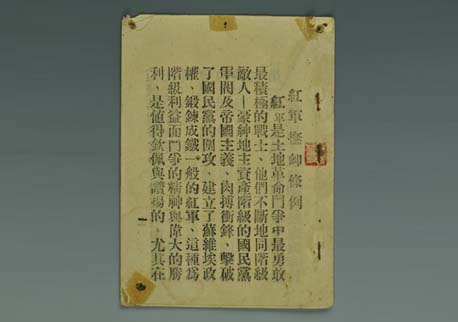 紅軍撫卹條例
紅軍是土地革命鬥爭中最勇敢
最積極的戰士、他們不斷地同階級
敵人—豪紳地主資產階級的國民黨
軍閥及帝國主義、肉搏衝鋒、擊破
了國民黨的圍攻、建立了蘇維埃政
權、鍛鍊成鐵一般的紅軍、這種為
階級利益而鬥爭的精神與偉大的勝
利、是値得欽佩與讚揚的、尤其在
一